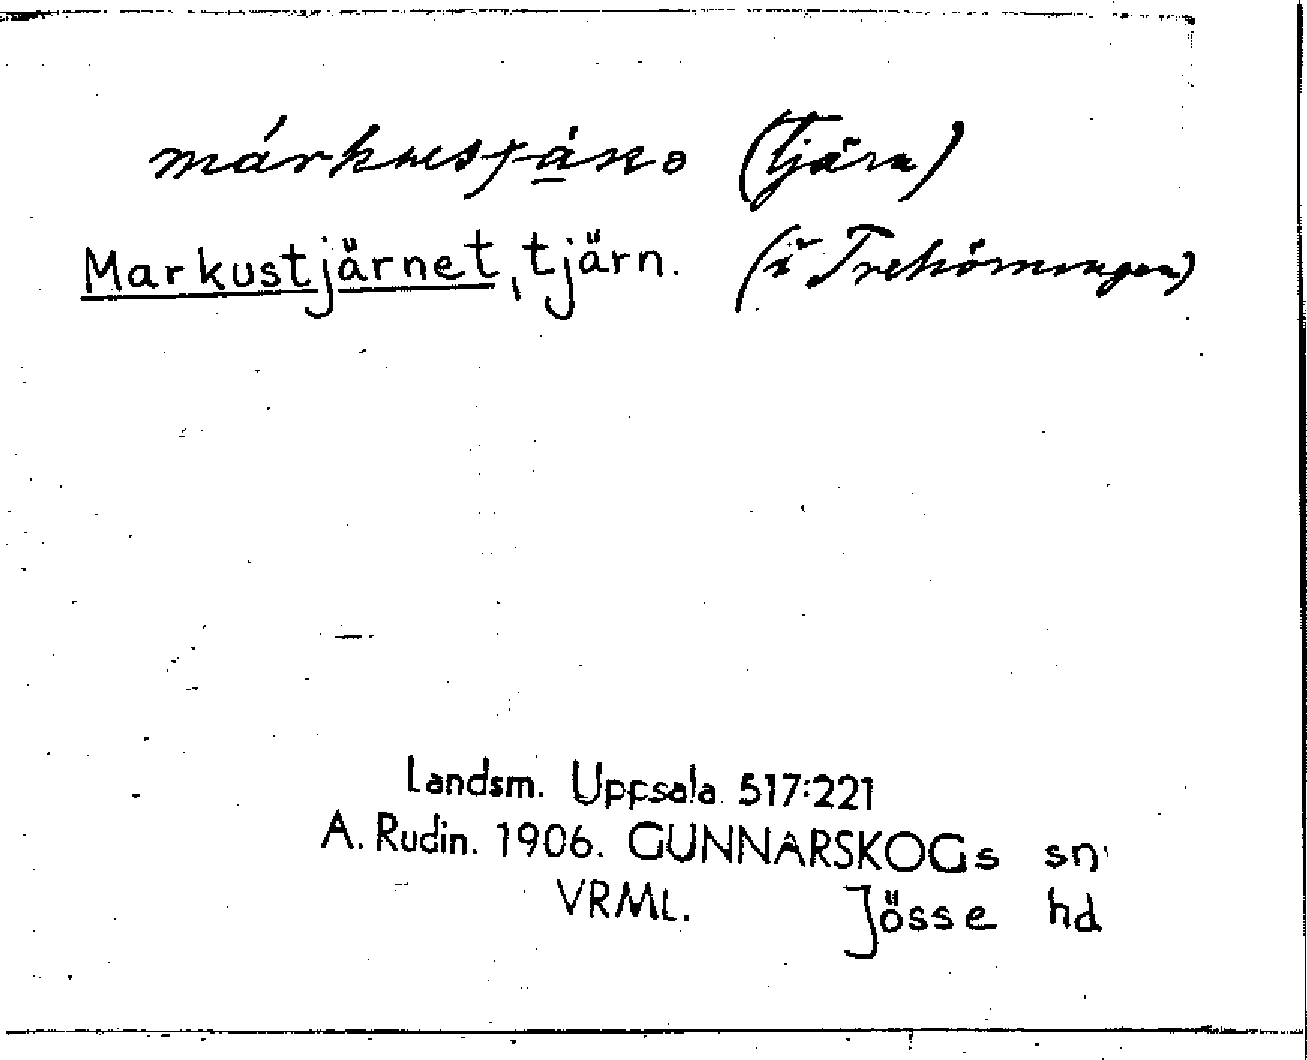 (tjärn)
Markustjärnet, tjärn. (i Trehörningen)
Landsm. Uppsala 517:221
A. Rudin. 1906. GUNNARSKOGs sn
VRML. Jösse hd